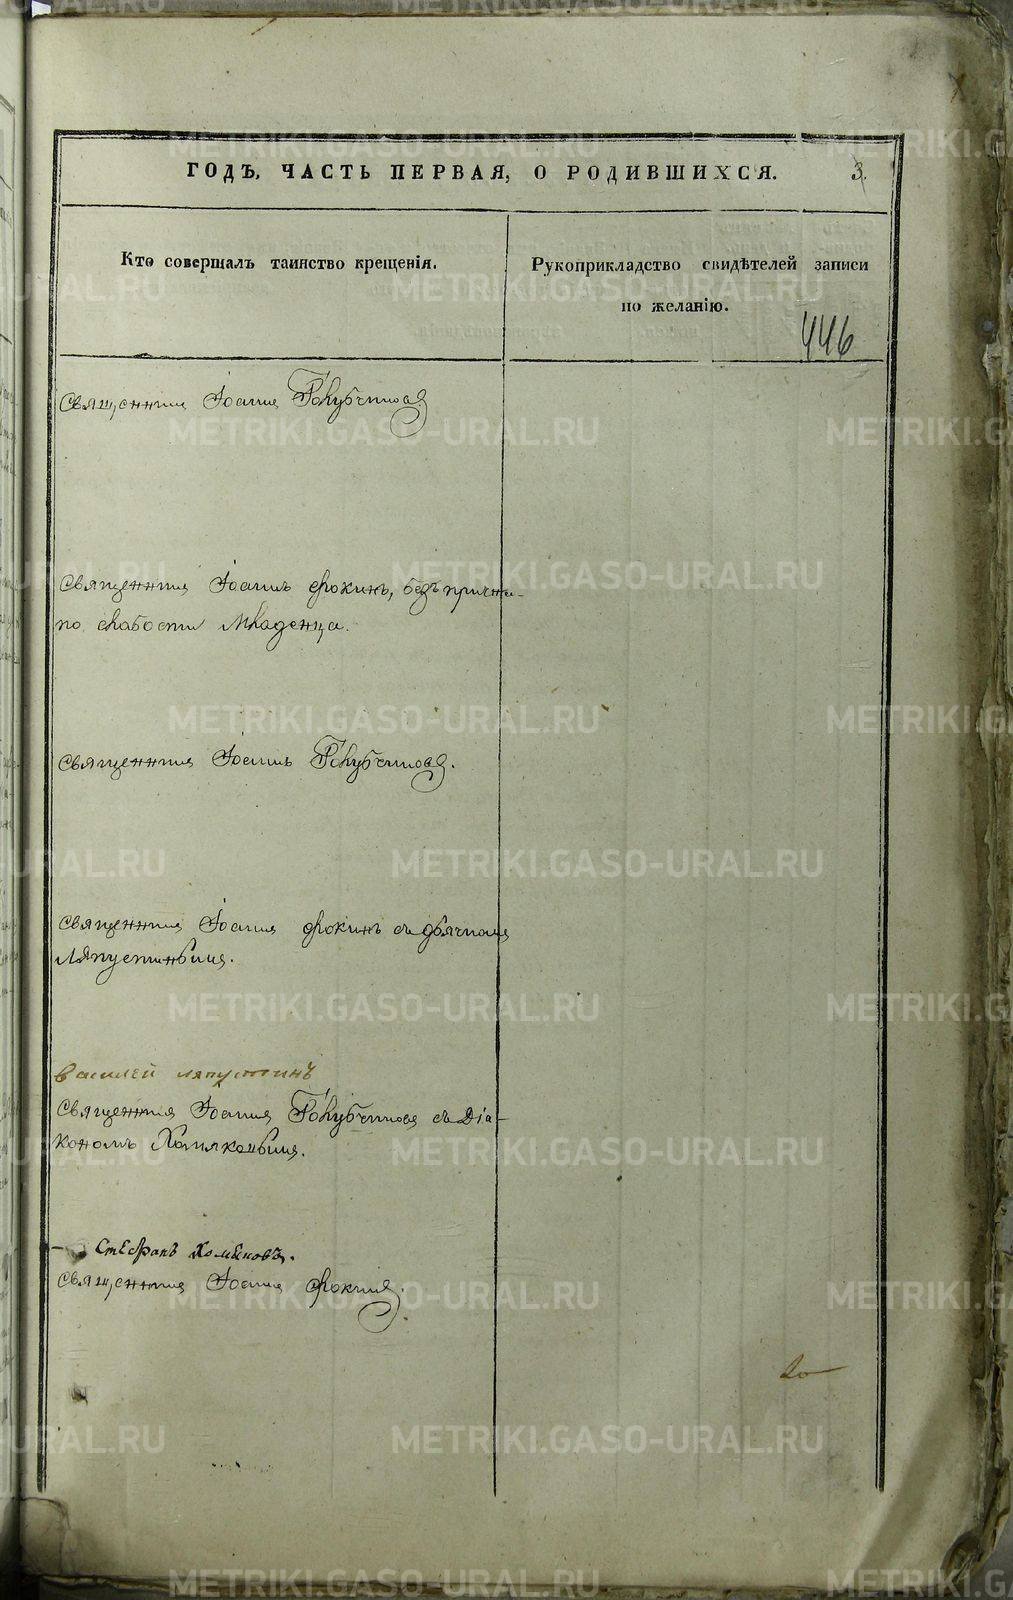 ГОДЪ, ЧАСТЬ ПЕРВАЯ, О РОДИВШИХСЯ. 3.
Кто совершалъ таинство крещенія.
Рукоприкладство свидѣтелей записи
по желанію.
446
Священникъ Іоаннъ Голубчиковъ
Священникъ Іоаннъ Фокинъ, безъ причта
по слабости младенца.
Священникъ Іоаннъ Голубчиковъ.
Священникъ Іоаннъ Фокинъ съ дьячкомъ
Ляпустинымъ.
Василей Ляпустинъ
Священникъ Іоаннъ Голубчиковъ съ Діа-
кономъ Хомяковымъ.
Стефанъ Хомяковъ.
Священникъ Іоаннъ Фокинъ.
METRIKI.GASO-URAL.RU